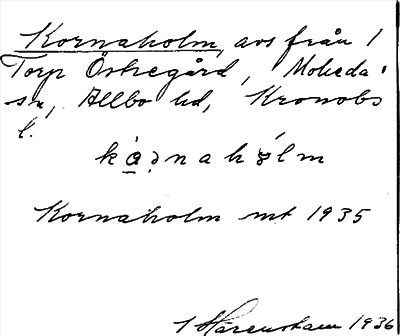 Kornaholm, avs från 1
Torp Östregård, Moheda
sn, Allbo hd, Kronobs
l.
Kornaholm mt 1935
1936